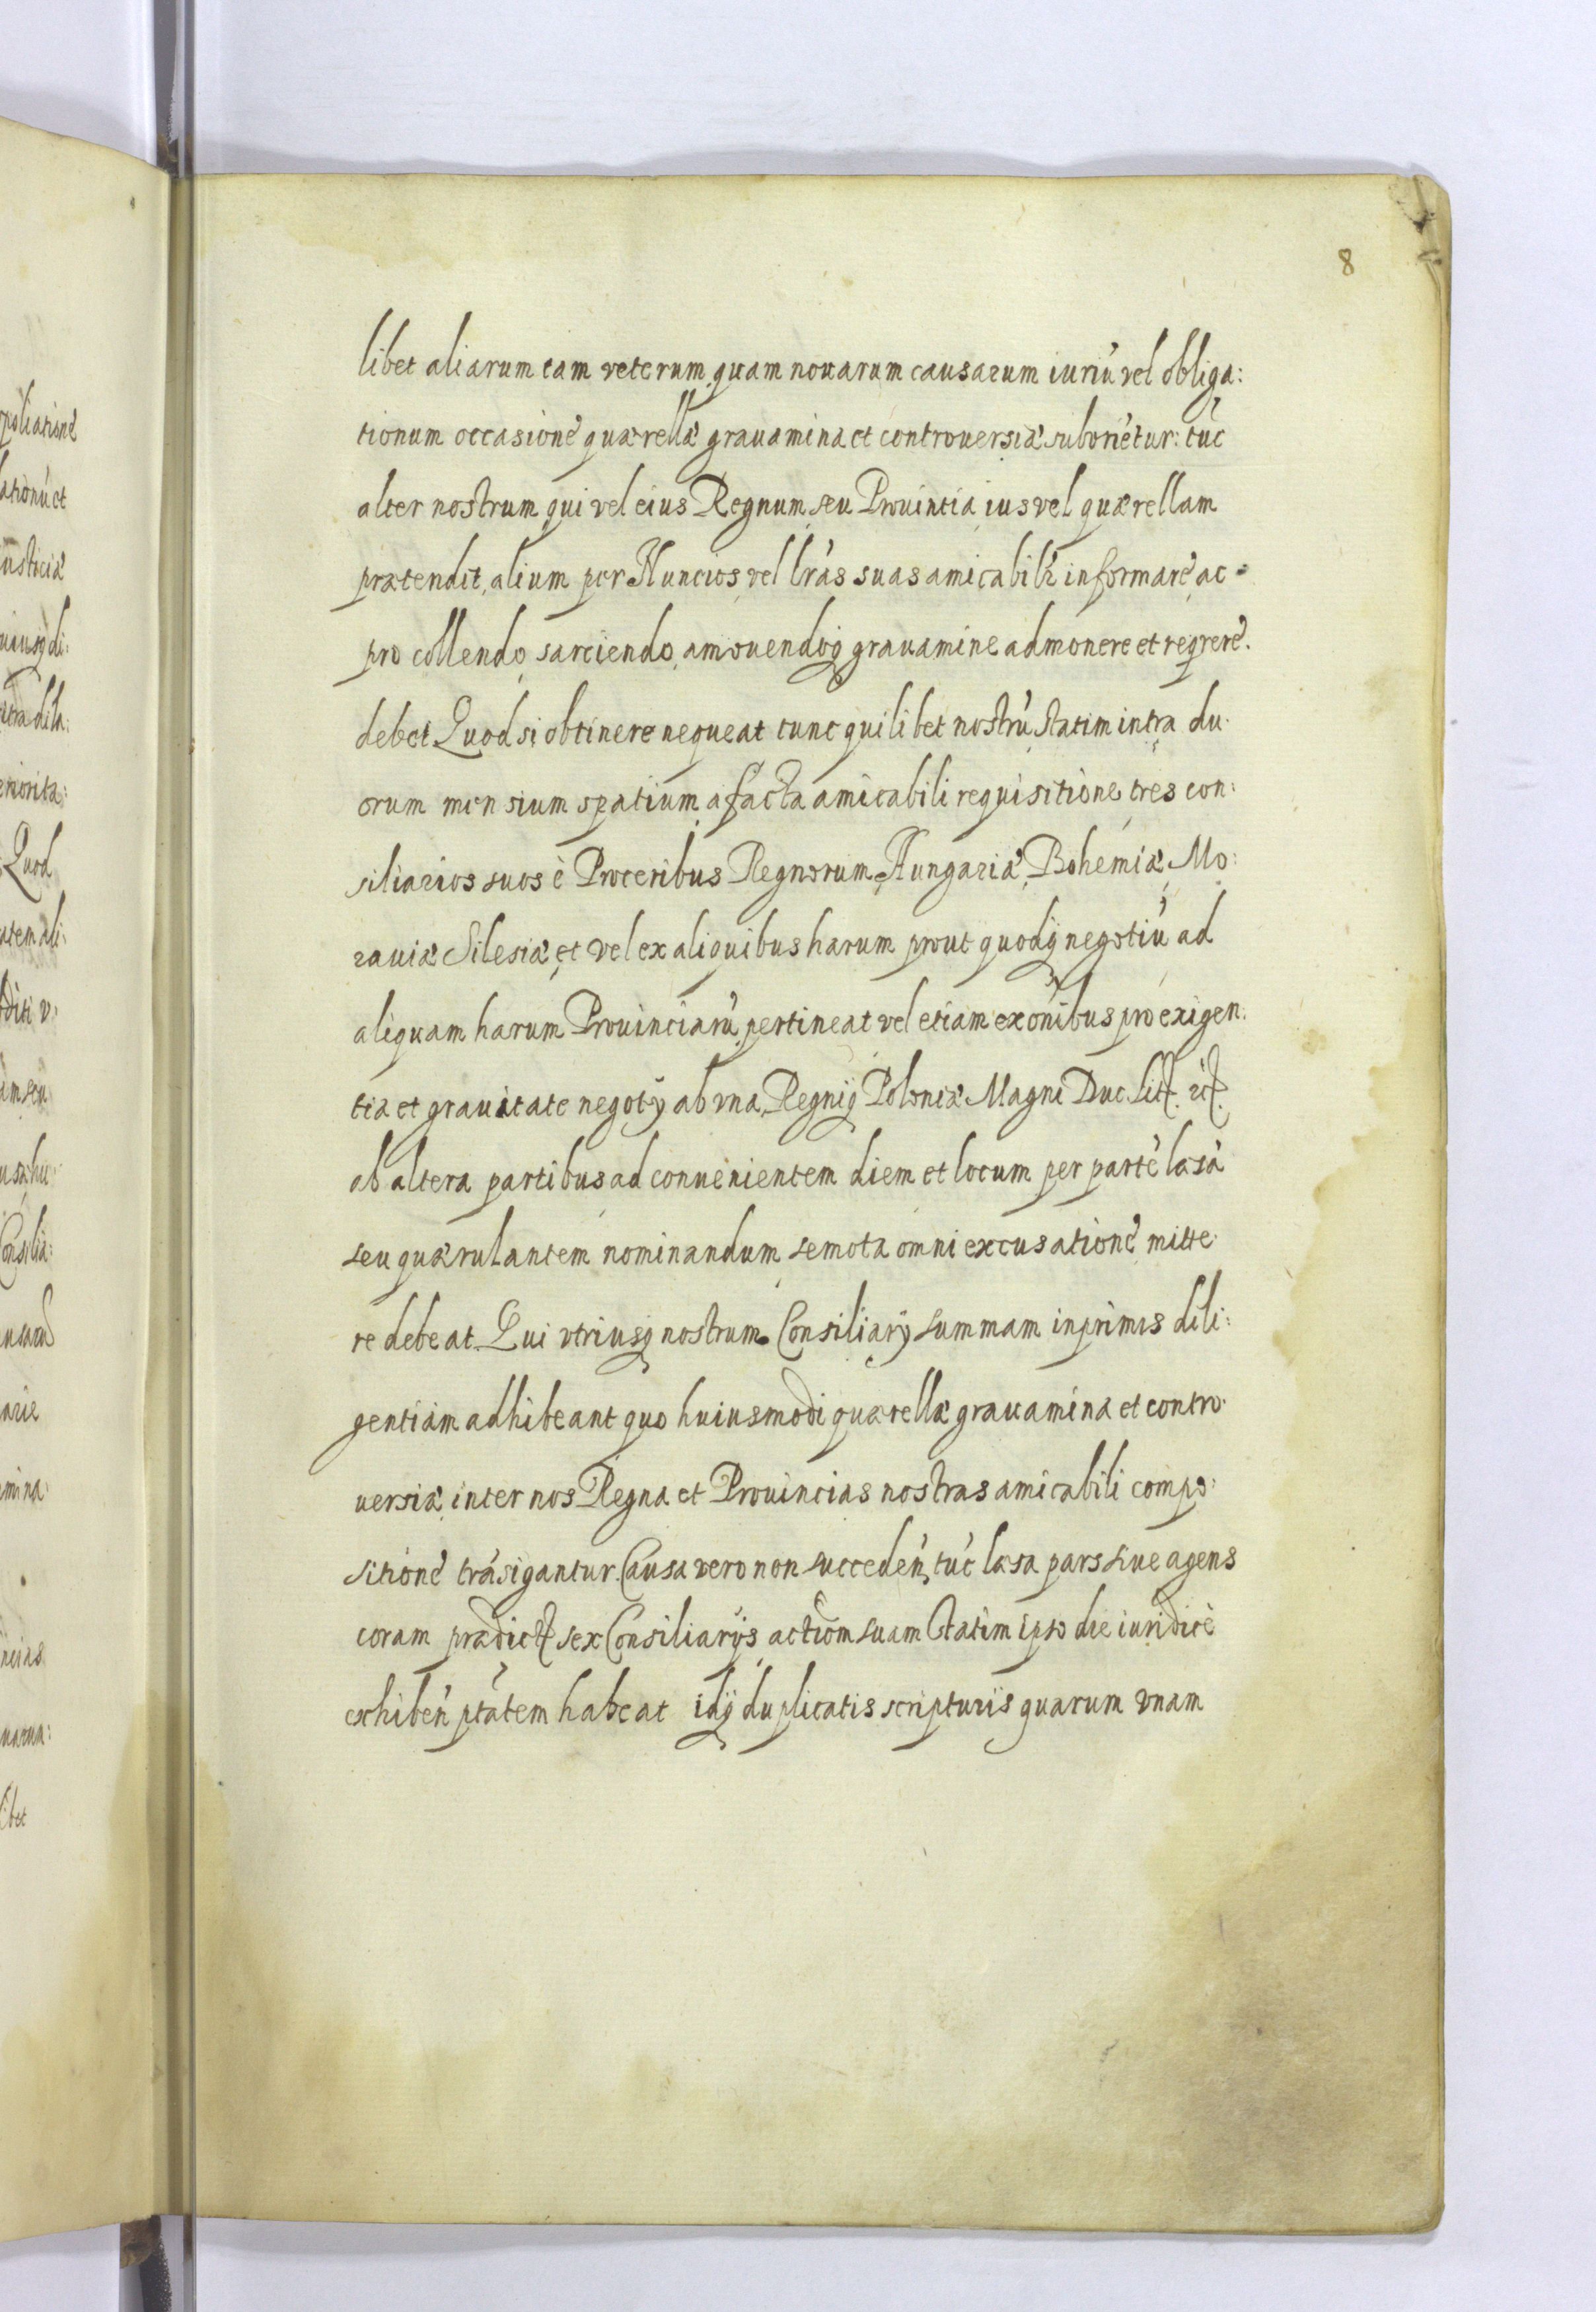 8
libet aliarum tam veterum quam nouarum causarum iuriū vel obliga:
tionum occasione quærellæ grauamina et controuersiæ suboriētur: tūc
alter nostrum qui vel eius Regnum seu Prouintia ius vel quærellam
prætendit, alium per Nuncios vel lrās suas amicabilr informare, ac
pro tollendo, sarciendo, amouendoq grauamine admonere et reqrere.
debet Quod si obtinere nequeat tunc quilibet nostrū statim intra du.
orum mensium spatium a facta amicabili requisitione, tres con:
siliarios suos è Proceribus Regnorum Hungariæ, Bohemiæ, Mo:
rauiæ Silesiæ et vel ex aliquibus harum prout quodq negotiū ad
aliquam harum Prouinciarū pertineat vel etiam ex oīnibus pro exigen.
tia et grauitate negotÿ ab vna, Regniq Poloniæ Magni Duc. Litt.
ab altera partibus ad conuenientem diem et locum per partē læsā
seu quærulantem nominandum semota omni excusatione mitte.
re debeat. Qui vtriusq nostrum Consiliarÿ summam inprimis dili:
gentiam adhibeant quo huiusmodi quærellæ grauamina et contro.
uersiæ inter nos Regna et Prouincias nostras amicabili compo:
sitione trāsigantur. Causa vero non succeden, tūc læsa pars siue agens
coram prædict sex Consiliarÿs actiom suam statim ipso die iuridicè
exhiben ptātem habeat idq duplicatis scripturis quarum vnam
poliatione
ationū et
usticiæ
uiusq di:
itra dila:
eriorita:
Quod
atem ali:
diti v.
am seu
Consilia:
arie
mina:
ncias
libet